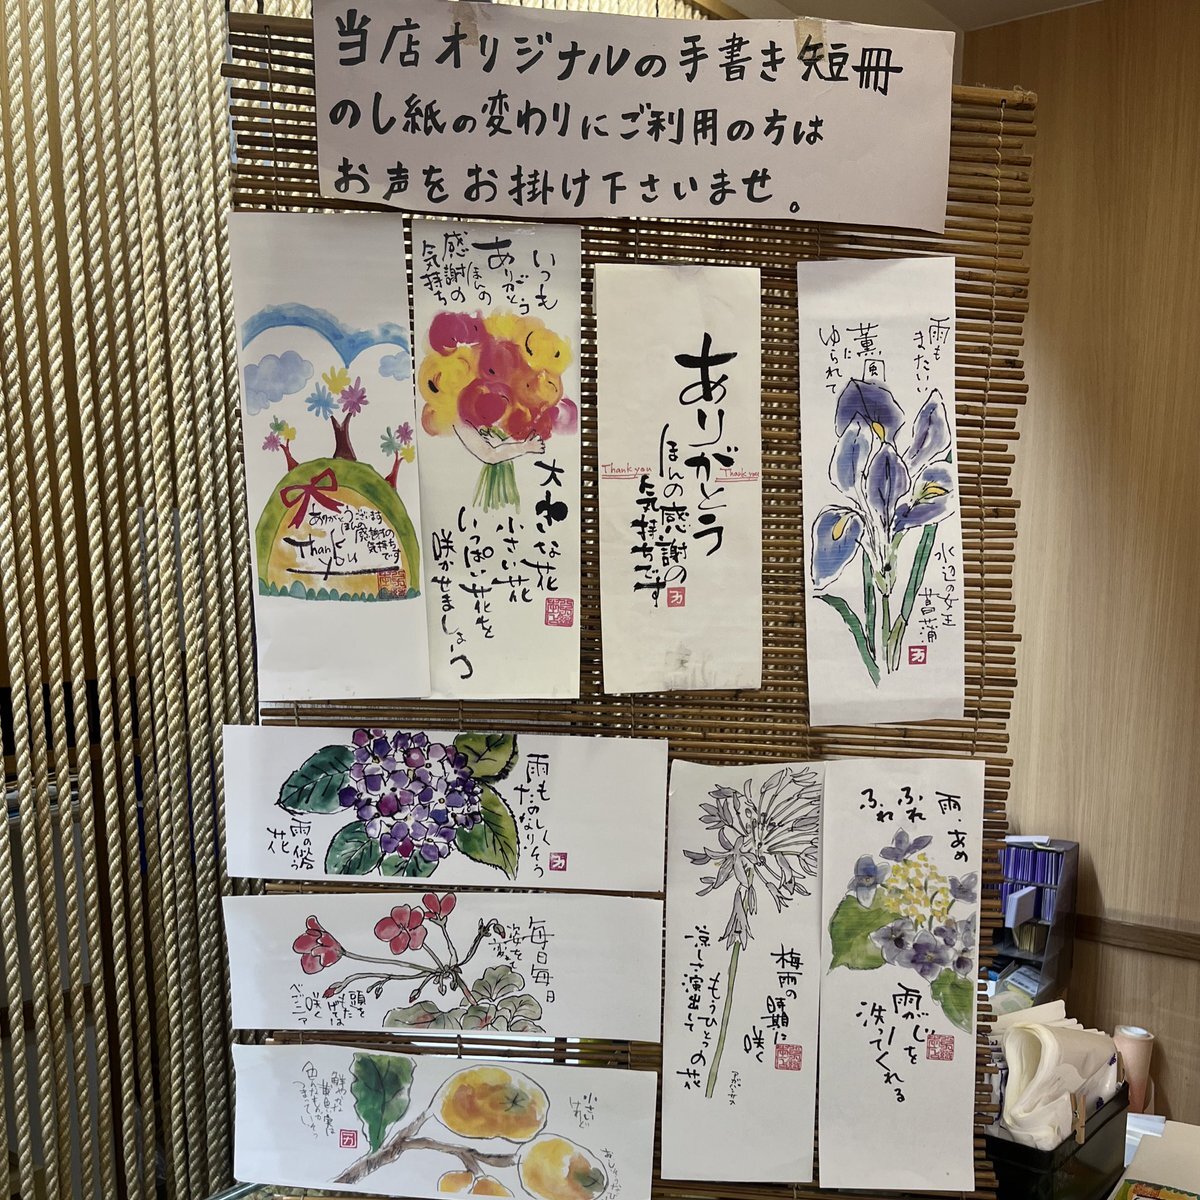 当店オリジナルの手書き短冊
のし紙の変わりにご利用の方は
お声をお掛け下さいませ。
ありがとうございます
ほんの
感謝の
気持ちです
Thank you
いつも
ありがとう
ほんの
感謝の
気持ち
大きな花
小さい花
いっぱい花を
咲かせましょう
ありがとう
ほんの感謝の
気持ちです
Thank you
Thank you
雨も
またいい
薫風
に
ゆられて
水辺の女王
菖蒲
雨も
たのしく
なりそう
雨の似合う
花
毎日毎日
姿を
変え
頭を
もたげては
咲く
ベゴニア
小さい
けれど
鮮やかな
黄色い実は
つまっていそう
梅雨の
時期に
咲く
もうひとつの花
涼しさ演出して
アガパンサス
雨、あめ
ふれふれ
雨がじを
洗ってくれる